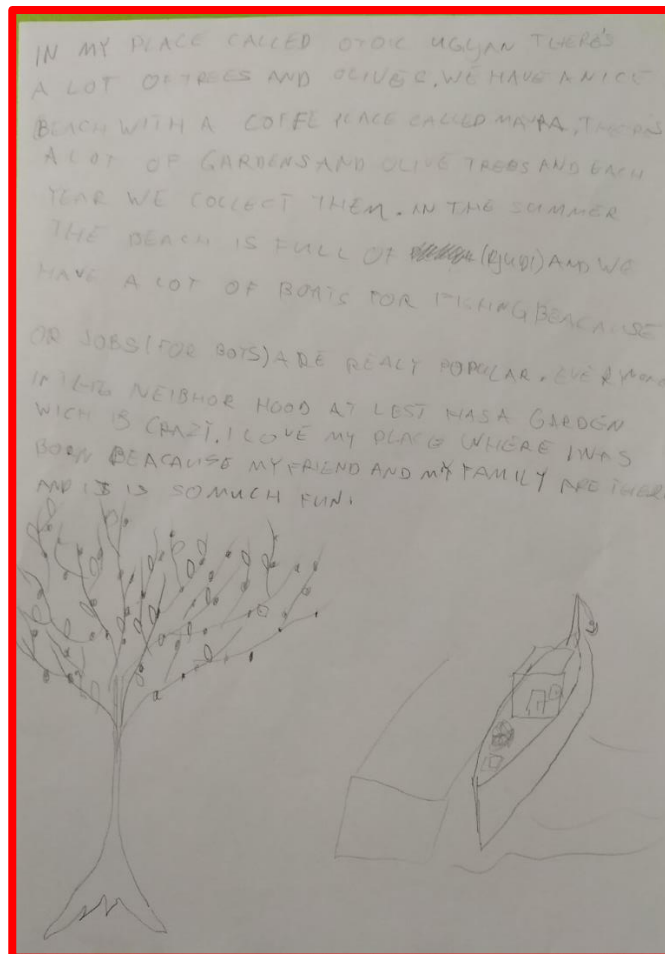 IN MY PLACE CALLED OTOK UGLJAN THERE'S
A LOT OF TREES AND OLIVES. WE HAVE A NICE
BEACH WITH A COFEE PLACE CALLED THER'S
A LOT OF GARDENS AND OLIVE TREES AND EACH
YEAR WE COLLECT THEM. IN THE SUMMER
THE BEACH IS FULL OF (LJUDI) AND WE
HAVE A LOT OF BOATS FOR FICHING BEACAUSE
OR JOBS (FOR BOTS) ARE REALY POPULAR. EVERYONE
IN NEIBHOR HOOD AT LEST HAS A GARDEN
WICH IS CRAZY. I LOVE MY PLACE WHERE I WAS
BORN BEACAUSE MY FRIEND AND MY FAMILY ARE THERE
AND IT IS SO MUCH FUN.